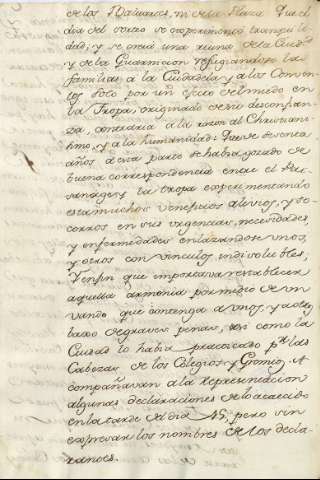 de los Naturales, ni de la Plaza. Que el
dia del sorteo se experimentó tranquili
dad; y se creía una ruina de la Ciud.
y de la Guarnicion refugiandose las
familias a la Ciudadela y a los Conven
tos solo por un efecto del miedo en
la Tropa, originado de su desconfian
za, contraria a la razon al Christianis
hmo, y a la humanidad: Que de sesenta
años a esta parte se habia gozado de
buena correspondencia entre el Pai
sanage, y la tropa experimentando
esta muchos veneficios alivios, y so
corros en sus urgencias, necesidades,
y enfermedades enlazandose unos,
y otros con vinculos indisolubles,
Y en fin que importava restablecer
aquella armonia por medio de un
vando que contenga a unos, y a otros
baxo de graves penas, asi como la
Ciudad lo habia practicado p.r las
Cabezas de los Colegios, y Gremios. A
compañavan a la representacion
algunas declaraciones de lo acaecido
en la tarde del dia 45, pero sin
expresar los nombres de los decla-
rantes.